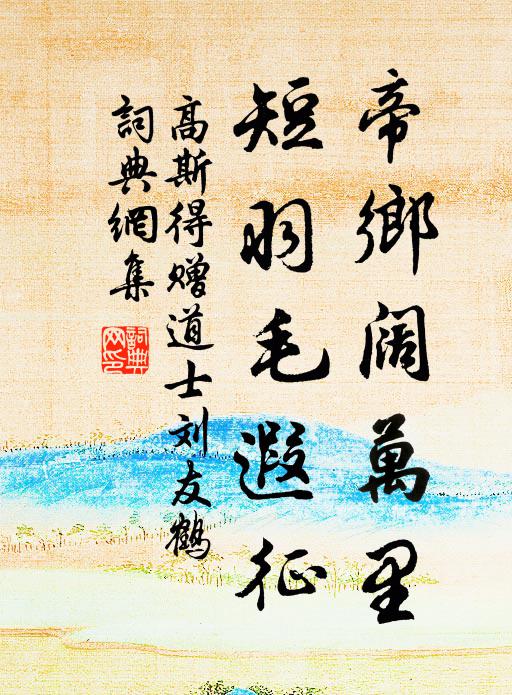 帝鄉阔萬里
短羽毛遐征
高斯得赠道士刘友鶴
詞典網集
詞典
网印